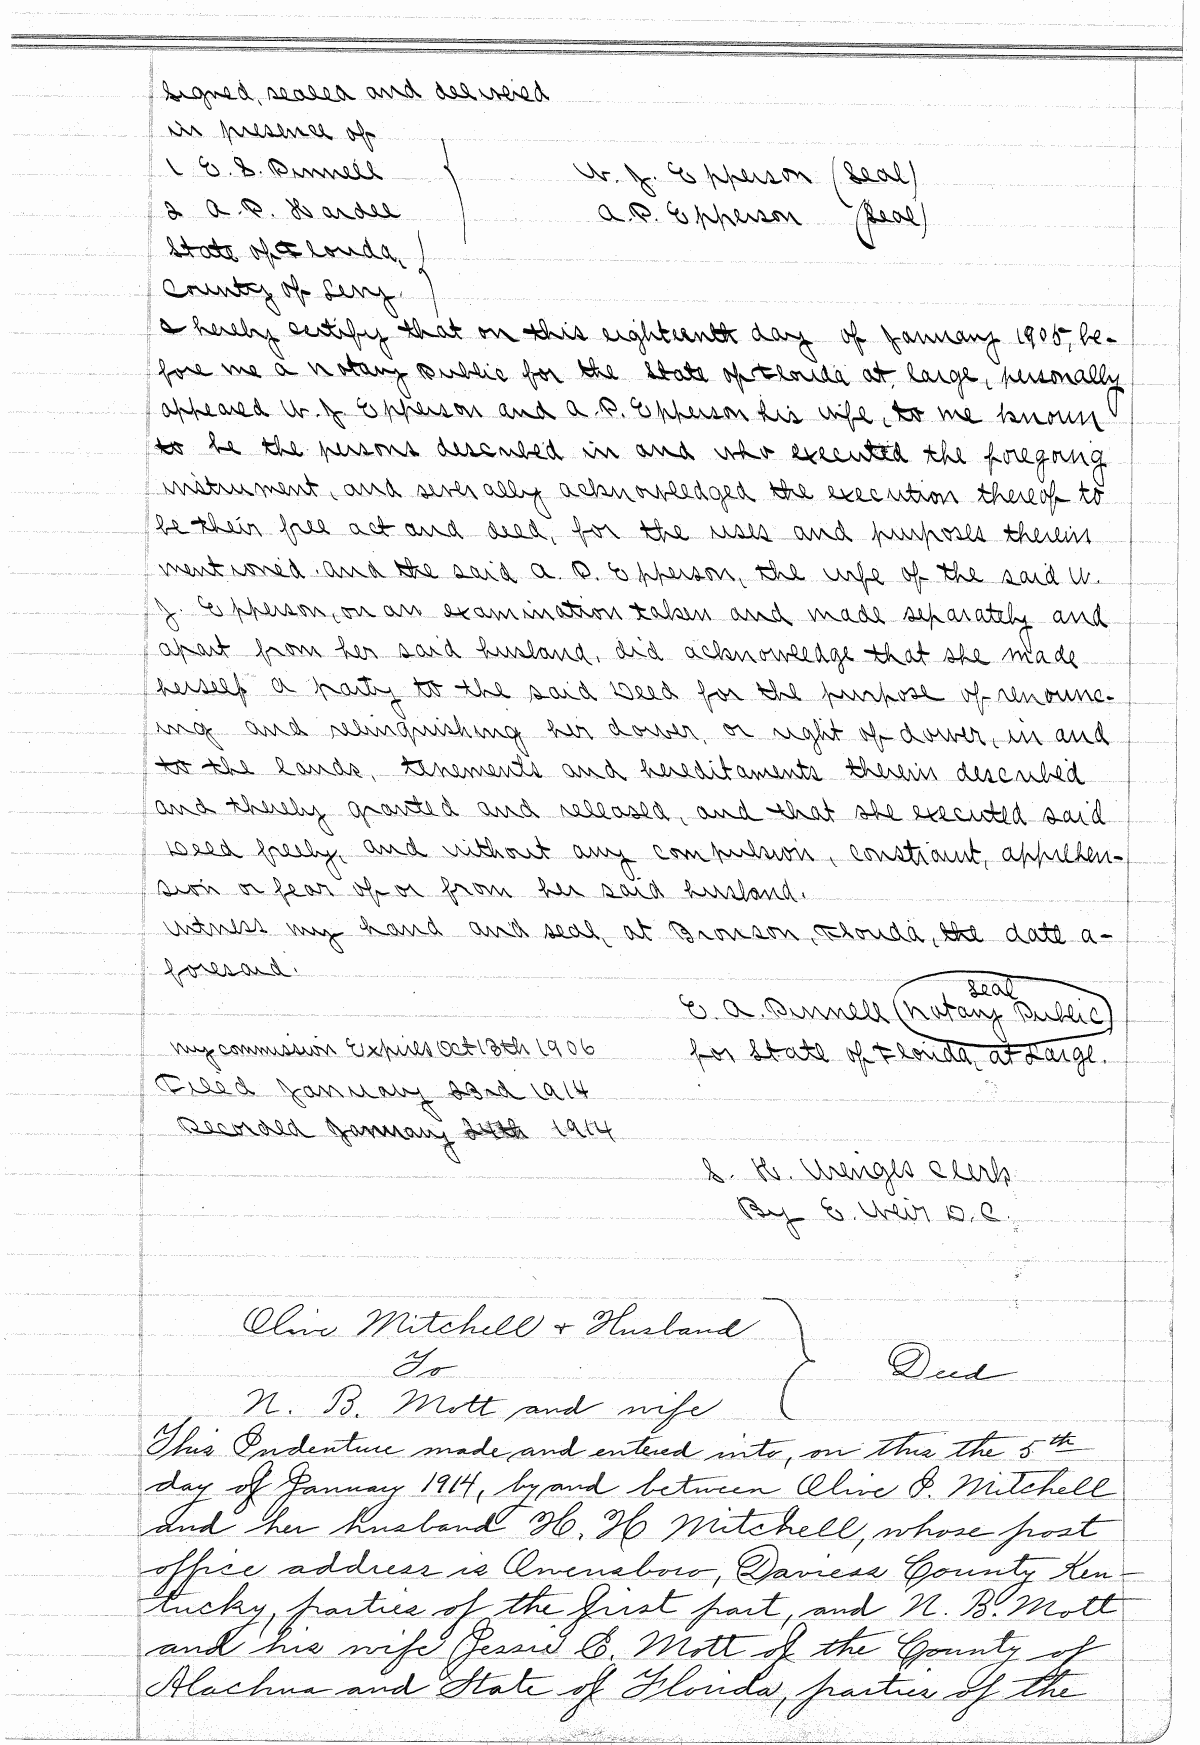 Signed, sealed and delivered
in presence of
1 E. S. Pinnell
2 A. P. Hardee
W. J. Epperson (Seal)
A. P. Epperson (Seal)
State of Florida,
County of Levy.
I hereby certify that on this eighteenth day of January 1905, be-
fore me a Notary Public for the State of Florida at large, personally
appeared W. J. Epperson and A. P. Epperson his wife, to me known
to be the persons described in and who executed the foregoing
instrument, and severally acknowledged the execution thereof to
be their free act and deed, for the uses and purposes therein
mentioned. and the said A. P. Epperson, the wife of the said W.
J. Epperson, on an examination taken and made separately and
apart from her said husband, did acknowledge that she made
herself a party to the said Deed for the purpose of renounc-
ing and relinquishing her dower, or right of dower, in and
to the lands, tenements and hereditaments therein described
and thereby granted and released, and that she executed said
Deed freely, and without any compulsion, constraint, apprehen-
sion or fear of or from her said husband.
Witness my hand and seal, at Bronson, Florida, the date a-
foresaid.
E. A. Pinnell (Notary Public)
Seal
for State of Florida, at Large.
My commission Expires Oct 13th 1906
Filed January 23rd 1914
Recorded January 24th 1914
S. H. Wenges Clerk
By E. Weir D. C.
Olive Mitchell + Husband
To
N. B. Mott and wife
Deed
This Indenture made and entered into, on this the 5th
day of January 1914, by and between Olive P. Mitchell
and her husband H. H Mitchell, whose post
office address is Owensboro, Daviess County Ken-
tucky, parties of the first part, and N. B. Mott
and his wife Jessie E. Mott of the County of
Alachua and State of Florida, parties of the